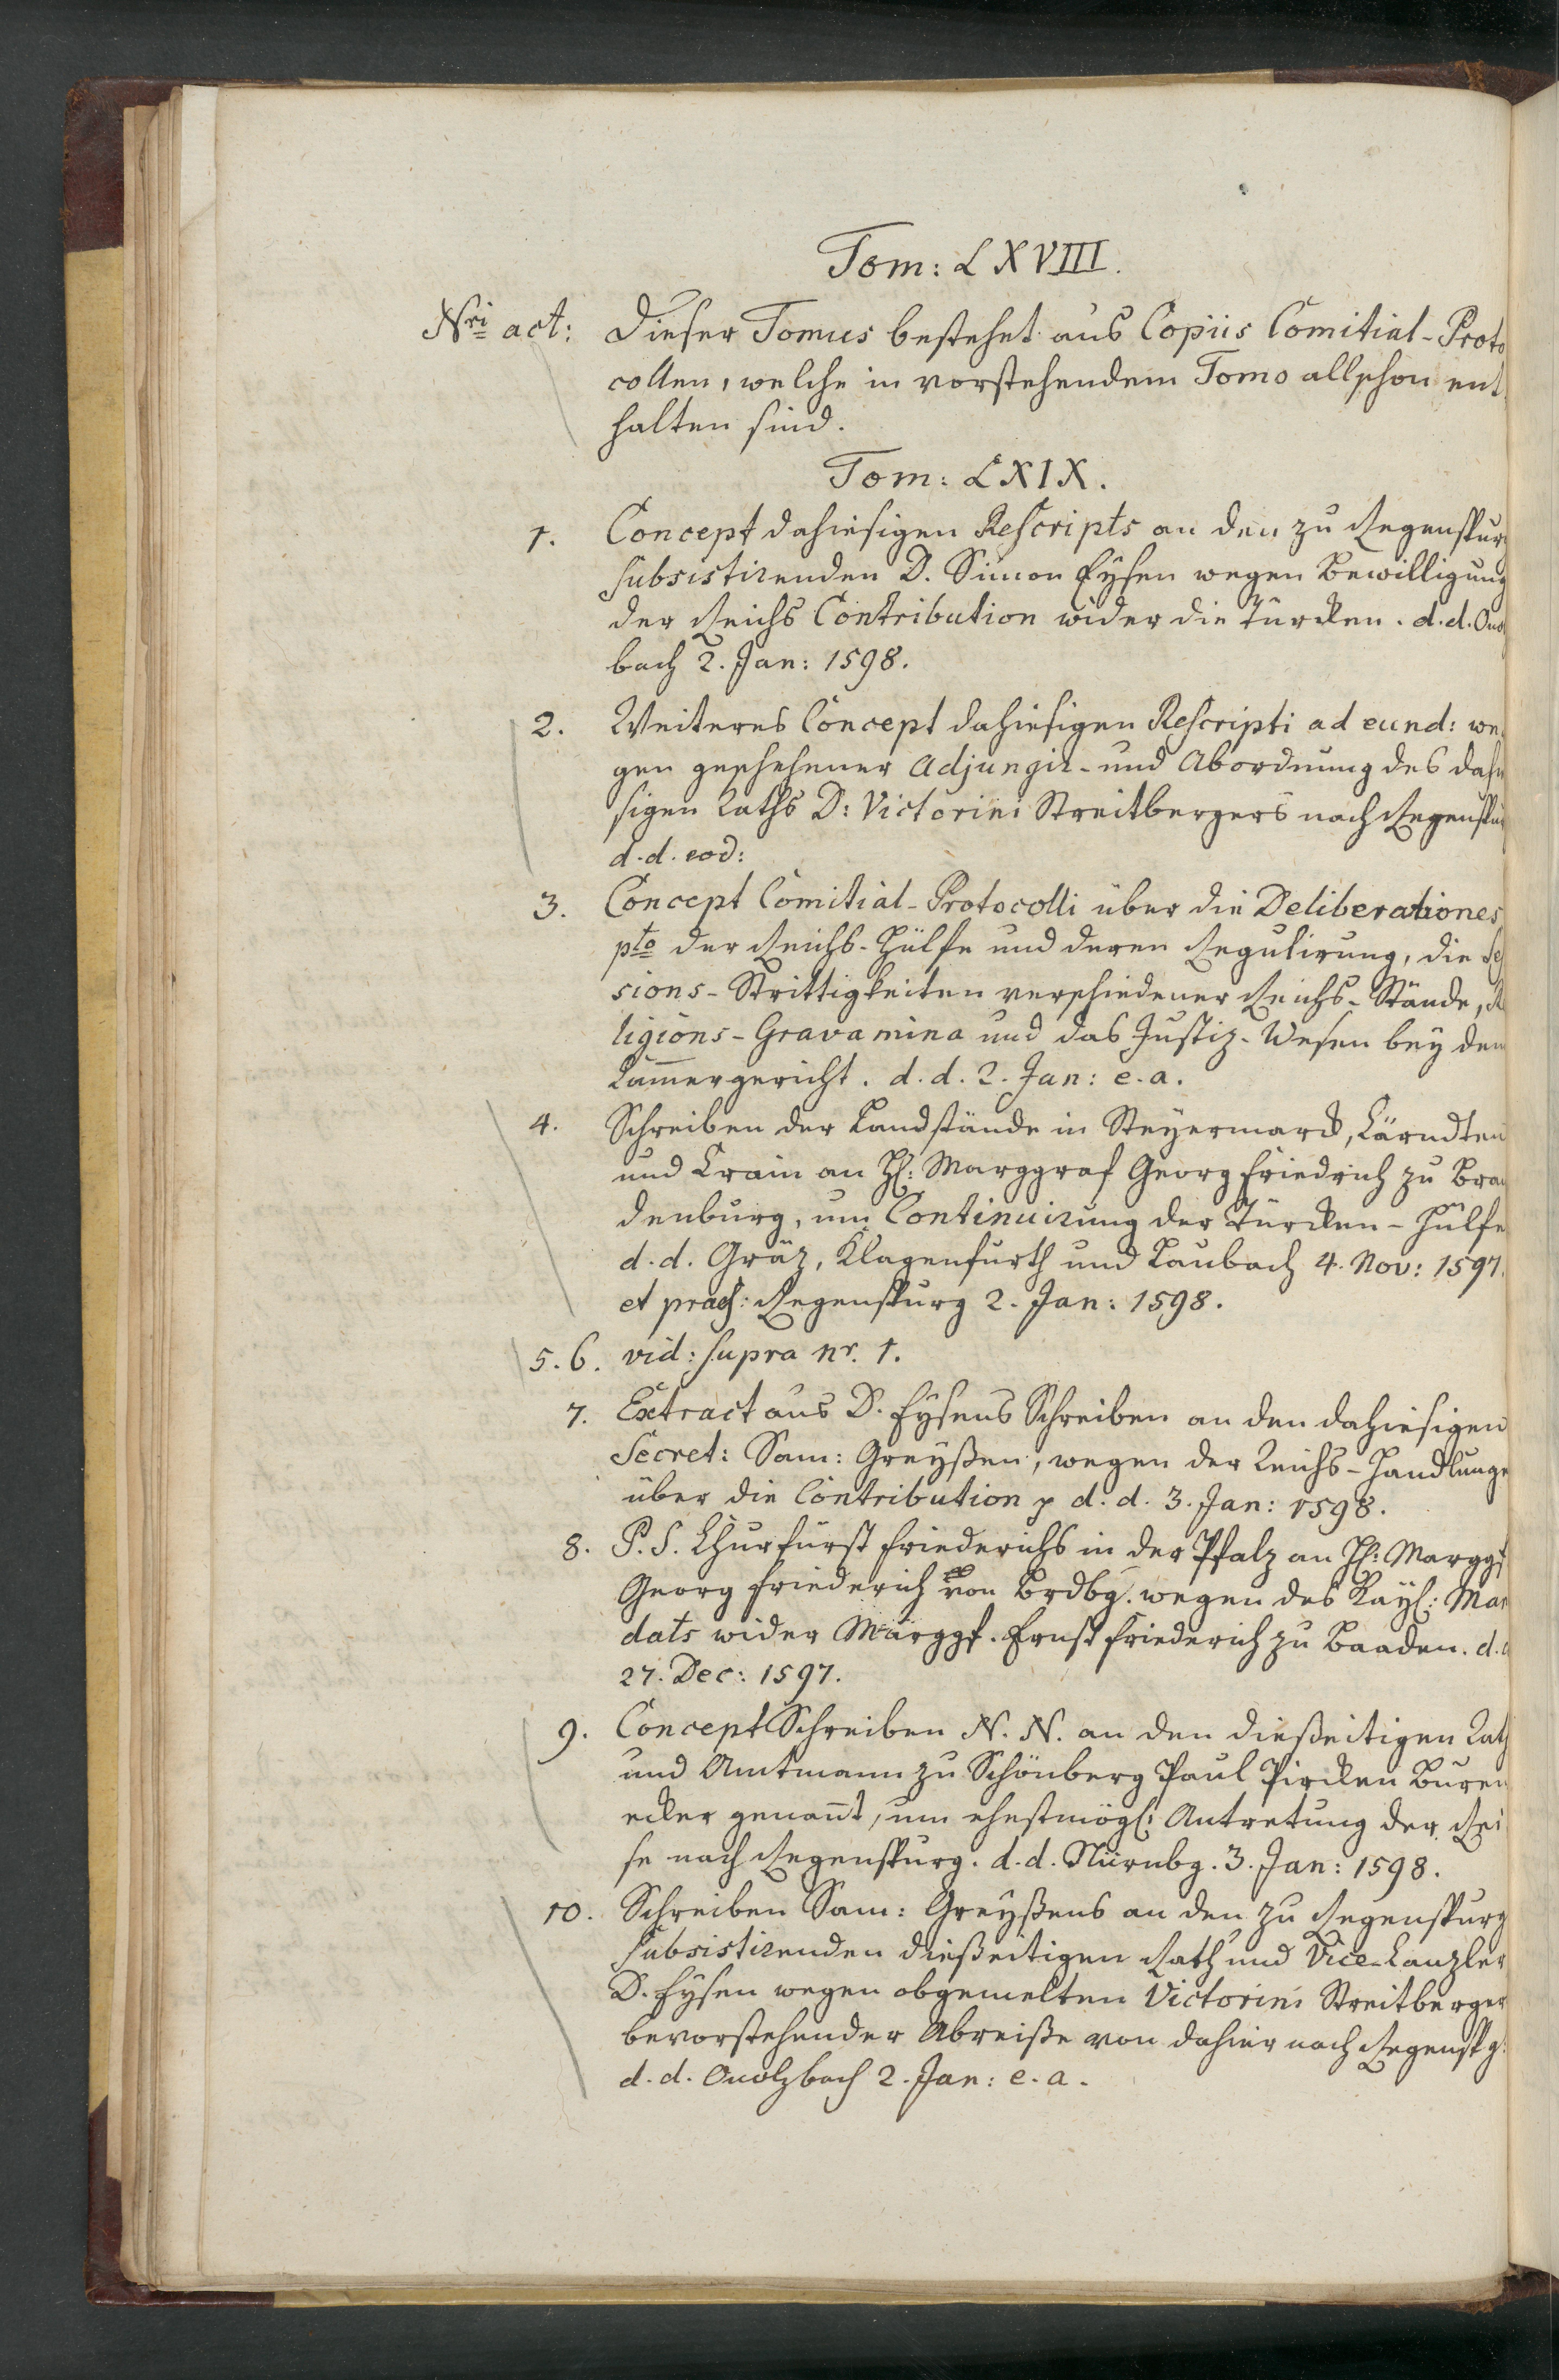 Tom: LXVIII.
Nri act: Dieser Tomus bestehet aus Copiis Comitial-Proto
collen, welche in vorstehendem Tomo allschon ent
halten sind.
Tom: LXIX.
1. Concept dahiesigen Rescripts an den zu Regenspurg
subsistirenden D. Simon Eysen wegen Bewilligung
der Reichs Contribution wider die Türcken. d. d. Ono
bach 2. Jan: 1598.
2. Weiteres Concept dahiesigen Rescripti ad eund: we
gen geschehener Adjungir- und Abordnung des dahie
sigen Raths D: Victorini Streitbergers nach Regenspur
d. d. eod:
3. Concept Comitial-Protocolli über die Deliberationes
pto der Reichs-Hülfe und deren Regulirung, die Ses
sions-Strittigkeiten verschiedener Reichs-Stände, Re
ligions-Gravamina und das Justiz-Wesen bey dem
Cam̅ergericht. d. d. 2. Jan: e. a.
4. Schreiben der Landstände in Steyermarck, Kärndten
und Crain an H: Marggraf Georg Friedrich zu Bran
denburg, um Continuirung der Türcken-Hülfe
d. d. Gräz, Klagenfurth und Laubach 4. Nov: 1597.
et praes: Regenspurg 2. Jan: 1598.
5. 6. vid: supra nr. 1.
7. Extract aus D. Eysens Schreiben an den dahiesigen
Secret: Sam: Greyßen, wegen der Reichs-Handlunge
über die Contribution p d. d. 3. Jan: 1598.
8. P. S. Churfürst Friederichs in der Pfalz an H: Marggf
Georg Friederich von Brdbg. wegen des Kayl: Man
dats wider Marggf. Ernst Friederich zu Baaden. d. d
27. Dec: 1597.
9. Concept Schreiben N. N. an den dießeitigen Rath
und Amtmann zu Schönberg Paul Pircken Buren
ecker genan̅t, um ehestmögl: Antretung der Rei
se nach Regenspurg. d. d. Nürnbg. 3. Jan: 1598.
10. Schreiben Sam: Greyßens an den zu Regenspurg
subsistirenden dießeitigen Rath und Vice-Canzler
D. Eysen wegen obgemelten Victorini Streitberger
bevorstehender Abreiße von dahier nach Regenspg.
d. d. Onolzbach 2. Jan: e. a.